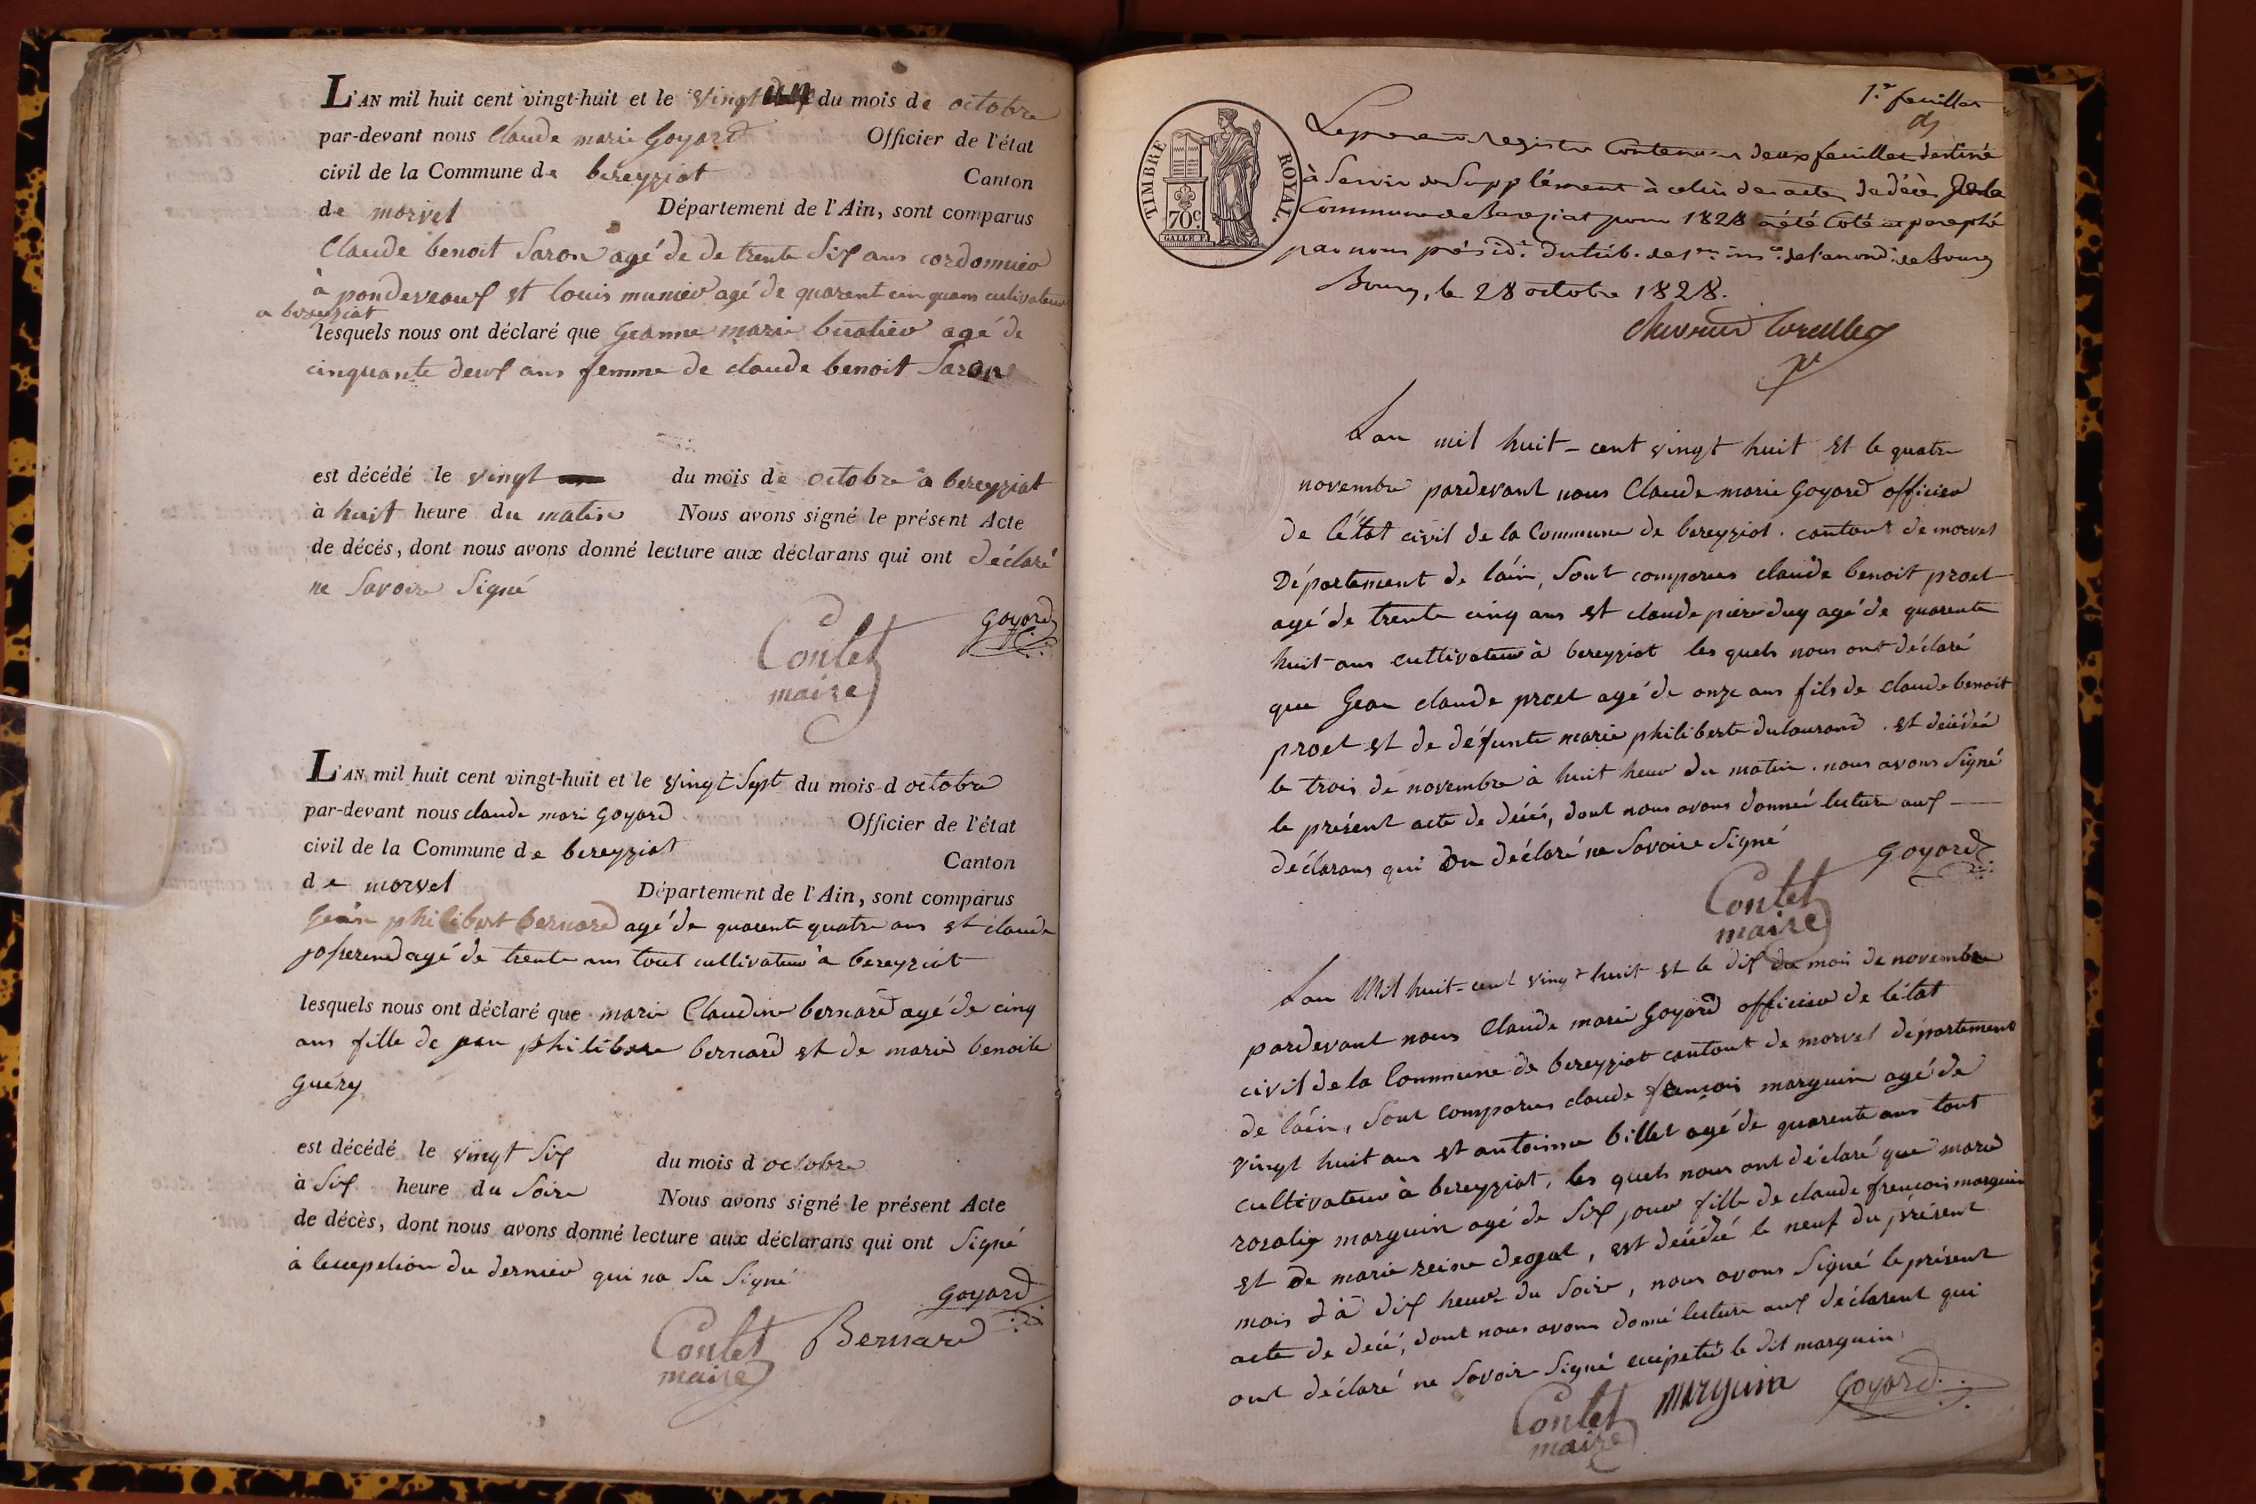 L'AN mil huit cent vingt-huit et le vingt du mois de octobre
par-devant nous Claude marie Goyard Officier de l'état
civil de la Commune de bereyziat Canton
de morvel Département de l'Ain, sont comparus
Claude benoit Saron agé de de trente Six ans cordonnier
à pondeveaux et louis munier agé de quarent cinq ans cultivateur
a bereyziat
lesquels nous ont déclaré que Geanne marie agé de
cinquante deux ans femme de claude benoit Saron
est décédé le vingt du mois de octobre a bereyziat
à huit heure du matin Nous avons signé le présent Acte
de décés, dont nous avons donné lecture aux déclarans qui ont déclaré
ne Savoire Signé
Goyard
Contet
maire
L'AN mil huit cent vingt-huit et le vingt Sept du mois d octobre
par-devant nous claude mari Goyard Officier de l'état
civil de la Commune de bereyziat Canton
de morvel Département de l'Ain, sont comparus
Gean philibert bernard agé de quarente quatre ans et claude
agé de trente ans tout cultivateur à bereyziat
lesquels nous ont déclaré que marie Claudine bernard agé de cinq
ans fille de jean philibere bernard et de marie benoite
Guéry
est décédé le vingt Six du mois d octobre
à Six heure du Soire Nous avons signé le présent Acte
de décès, dont nous avons donné lecture aux déclarans qui ont Signé
à lecepetion du dernier qui na Su Signé
Goyard
Contet Bernard
maire
1.er feuillet
TIMBRE ROYAL.
70c.
Le présent registre Contenant deux feuillets destiné
à Servir de Supplément à celui des actes de décès de la
Commune de Bereziat pour 1828 a été Coté et paraphé
par nous présid.t du trib. de 1ere ins.ce de l'arrond.t de Bourg
Bourg, le 28 octobre 1828.
Lan mil huit-cent vingt huit et le quatre
novembre pardevant nous Claude marie Goyard officier
de l'état civil de la Commune de bereyziat. cantont de morvel
Département de láin, Sont comparus claude benoit proet
agé de trente cinq ans et claude piere duy agé de quarente
huit ans cultivateur à bereyziat les quels nous ont déclaré
que Gean claude proet agé de onze ans fils de claude benoit
proet et de défunte marie philiberte dulaurand. est décédéé
le trois de novembre à huit heur du matin. nous avons Signé
le présent acte de décés, dont nous avons donneé lecture aux
déclarans qui on déclaré ne Savoire Signé
Goyard
Contet
maire
Lan Mil huit-cent vingt huit et le dix du mois de novembre
pardevant nous Claude marie Goyard officier de l'état
civil de la Commune de bereyziat cantont de morvel département
de láin, Sont comparus claude françois marguin agé de
vingt huit ans et antoinne billet agé de quarente ans tout
cultivateur à bereyziat, les quels nous ont déclaré que marie
rosalie marguin agé de Six jour fille de claude françois marguin
et de marie reine, est décédé le neuf du présent
mois d à dix heur du Soire, nous avons Signé le présent
acte de décé, dont nous avons donné lecture aux déclarent qui
ont déclaré ne Savoir Signé eccipeté le dit marguin
Contet marguin Goyard
maire